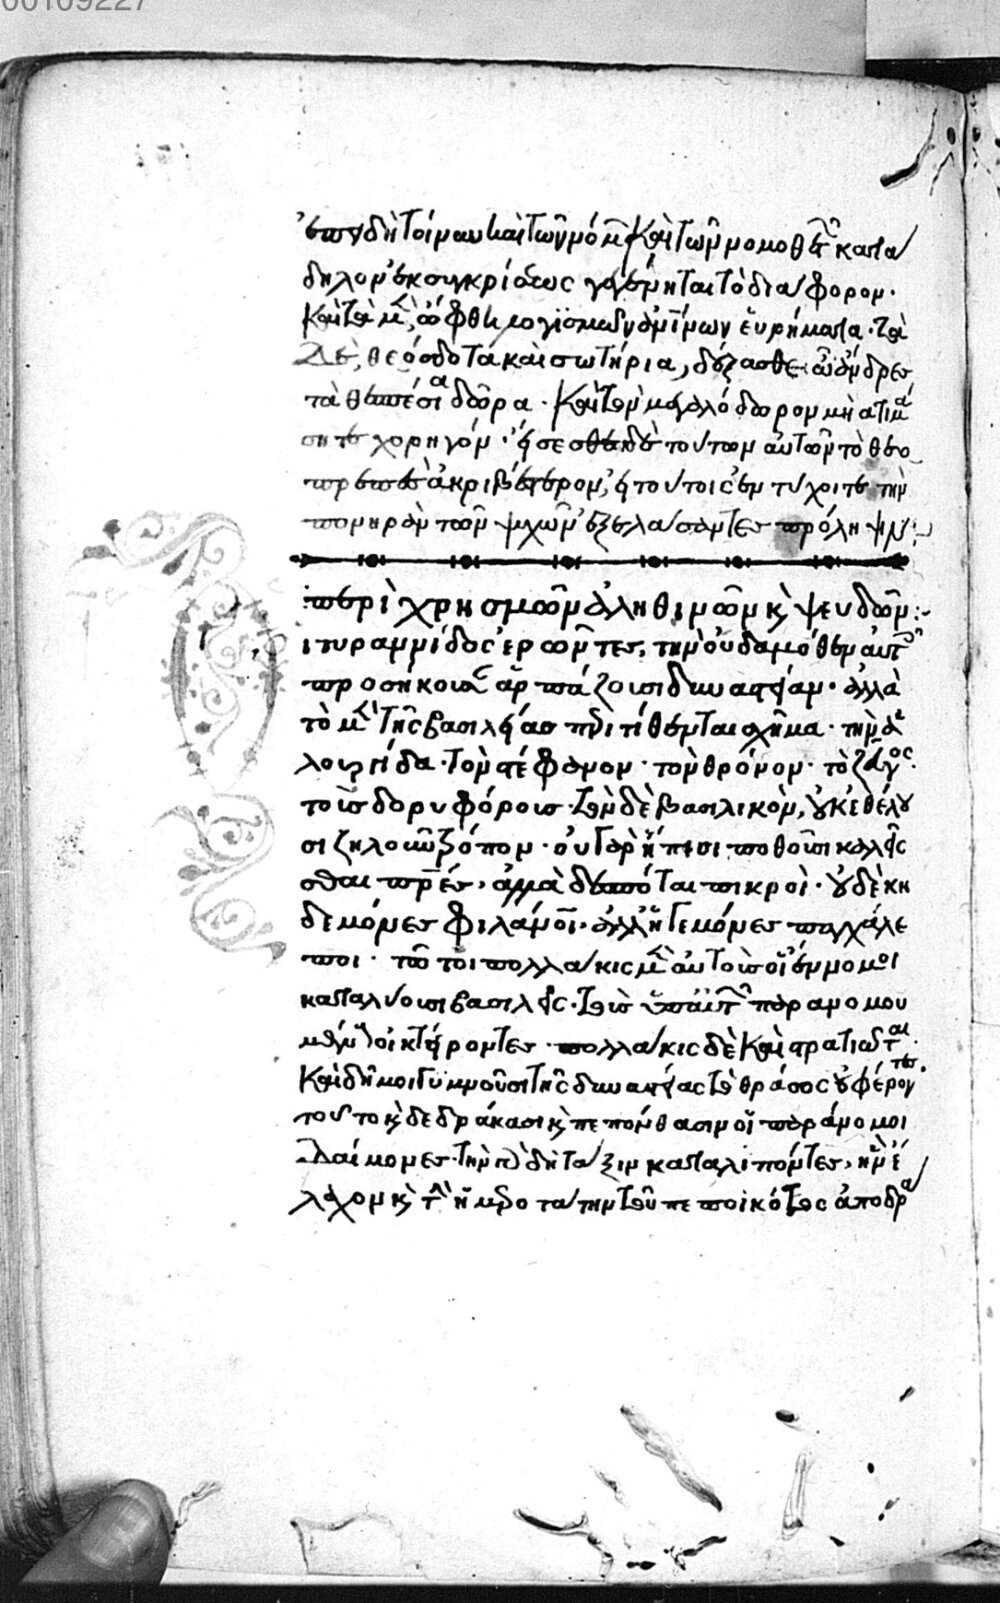 ἐπειδὴ τοίνυν καὶ τῶν νόμων καὶ τῶν νομοθετῶν κατά
δηλον ἐκ συγκρίσεως γεγένηται τὸ διάφορον·
καὶ τὰ μὲν, ὤφθη λογισμῶν ἀνθρωπίνων εὑρήματα· τὰ
δὲ, θεόσδοτα καὶ σωτήρια, δέξασθε ὦ ἄνδρες
τὰ θεσπέσια δῶρα· καὶ τὸν μεγαλόδωρον μὴ ἀτιμά
σητε χορηγόν· εἴσεσθε δὲ τούτων αὐτῶν τὸ θεο
πρεπὲς ἀκριβέστερον, εἰ τούτοις ἐντύχοιτε τὴν
πονηρὰν τῶν ψυχῶν ἐξελάσαντες πρόληψιν:
περὶ χρησμῶν ἀληθινῶν καὶ ψευδῶν:
Οἱ τυραννίδος ἐρῶντες, τὴν οὐδαμόθεν αὐτοῖς
προσήκουσαν ἁρπάζουσι δυναστείαν· ἀλλὰ
τὸ μὲν τῆς βασιλείας περιτίθενται σχῆμα· τὴν ἁ
λουργίδα· τὸν στέφανον· τὸν θρόνον· τὸ ζεῦγος·
τοὺς δορυφόρους· τὸν δὲ βασιλικὸν, οὐκ ἐθέλου
σι ζηλοῦν τρόπον· οὐ γὰρ ἤπιοι ποθοῦσι καλεῖ
σθαι πατέρες, ἀλλὰ δεσπόται πικροὶ· οὐδὲ κη
δεμόνες φιλάνθρωποι, ἀλλ' ἡγεμόνες παγχάλε
ποι· τῶ τοι πολλάκις μὲν αὐτοὺς οἱ ἔννομοι
καταλύουσι βασιλεῖς· τοὺς ὑπ' αὐτῶν παρανομου
μένους οἰκτείροντες· πολλάκις δὲ καὶ στρατιῶται·
καὶ δῆμοι γυμνοῦσι τῆς δυναστείας τὸ θράσος οὐ φέροντες·
τοῦτο καὶ δεδράκασι καὶ πεπόνθασιν οἱ παράνομοι
δαίμονες· τὴν γὰρ δὴ τάξιν καταλιπόντες, ἣν ἔ
λαχον καὶ τὴν ἡμερωτάτην τοῦ πεποιηκότος ἀποδρά